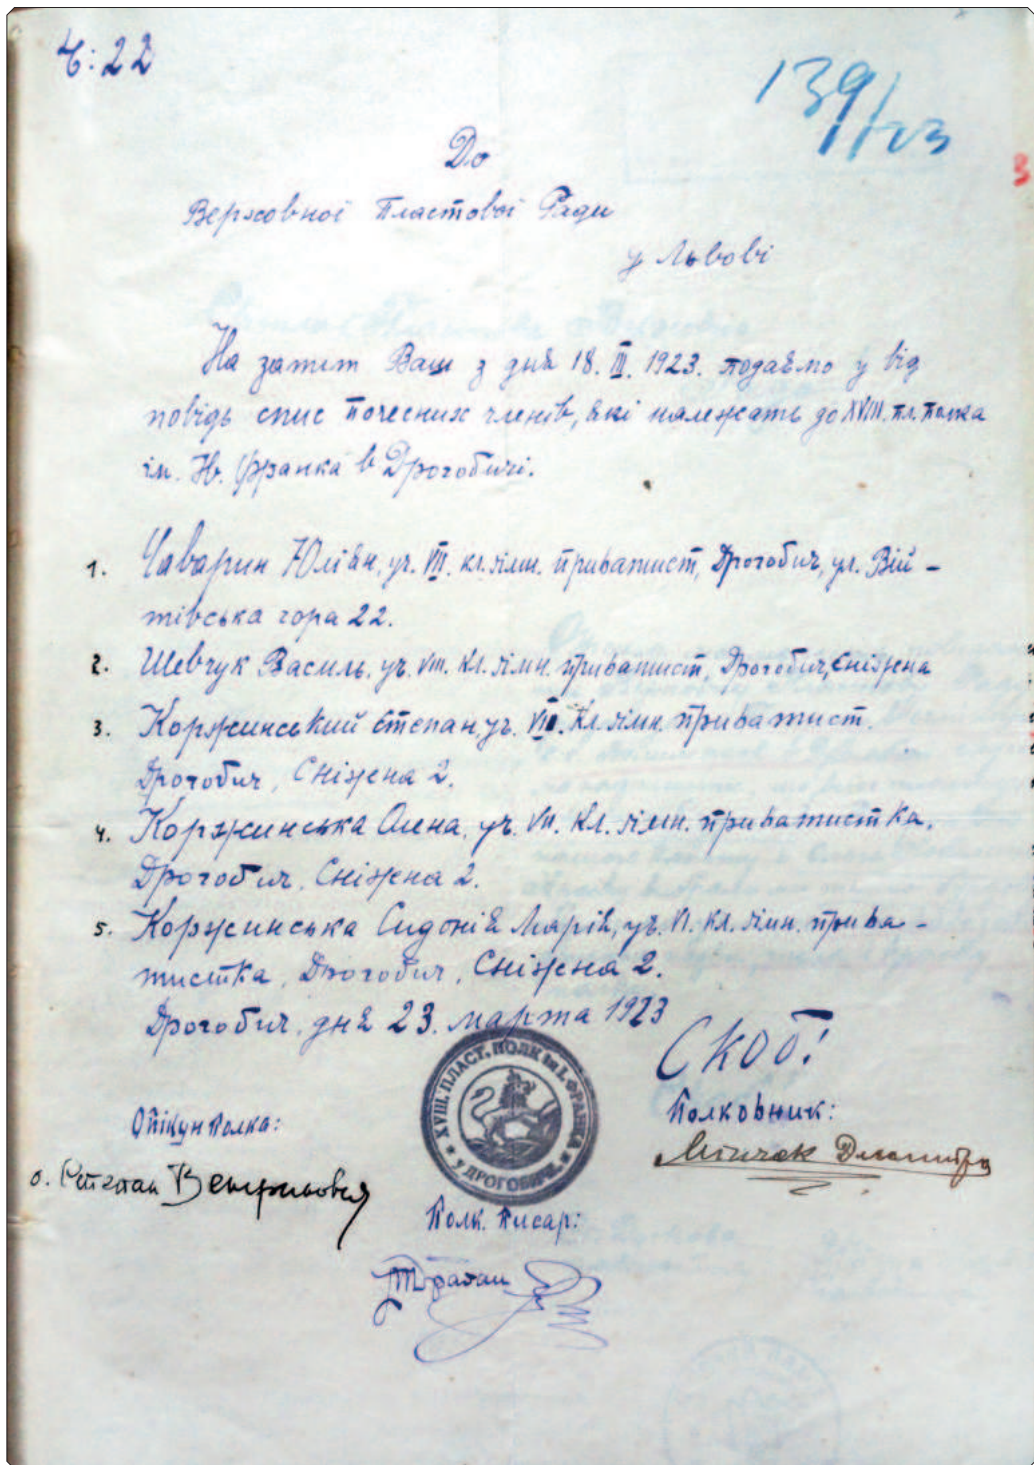 Ч: 22
139/23
3
До
Верховної Пластової Ради
у Львові
На запит Ваш з дня 18. III. 1923. подаємо у від
повідь спис почесних членів, які належать до XVIII. пл. полка
ім. Ів. Франка в Дрогобичі.
1. Чаварин Юліян, уч. VII. кл. гімн. приватист, Дрогобич, ул. Вій-
тівська гора 22.
2. Шевчук Василь, уч. VIII. кл. гімн. приватист, Дрогобич, Сніжена
3. Коржинський Степан, уч. VIII. кл. гімн. приватист.
Дрогобич, Сніжена 2.
4. Коржинська Олена, уч. VII. кл. гімн. приватистка,
Дрогобич, Сніжена 2.
5. Коржинська Сидонія Марія, уч. VI. кл. гімн. прива-
тистка, Дрогобич, Сніжена 2.
Дрогобич, дня 23. марта 1923
СКОБ!
XVIII. ПЛАСТ. ПОЛК ім. І. ФРАНКА
У ДРОГОБИЧІ
Опікун полка:
Полковник:
о. Степан Венгринович
Дмитро
Полк. писар: